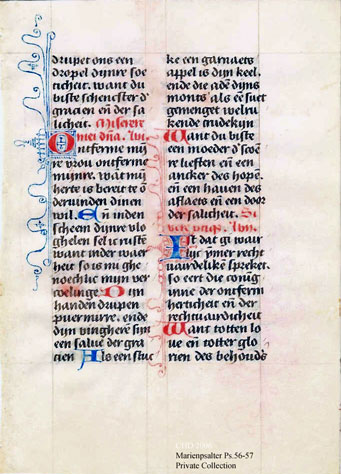 drupet ons een
dropel dijnre soe
ticheit. want du
biste schencster d'
gracien eñ der sa
licheit. Miserere
mei dñs. lvi
Ontferme mij
re vrou ontferme
mijre. want mijn
herte is bereit te o
dervinden dinen
wil. Eñ in den
scheem dijnre vlo
ghelen sel ic rusten
want in der waer
heit so is mi ghe
noechlic mijn ver
coelinge. Dijn
handen drupen
puer mirre. ende
dijn vingheren sijn
een salue der gra
cien Als een stuc
ke een garnaets
appel is dijn keel.
ende die adem dijns
monts als een suet
gemenget welru
kende crudekijn
Want du biste
een moeder d' scoen
re lieften eñ een
ancker des hopen
eñ een hauen des
aflaets eñ een door
der salicheit. Si
vere
Ist dat gi waer
lijc ymmer recht
uaardelike spreket.
so eert die conig
inne der ontferm
herticheit eñ der
rechtuaerdicheit
Want totten lou
ue eñ totter glo
rien des behouds
CHD 2006
Marienpsalter Ps.56-57
Private Collection